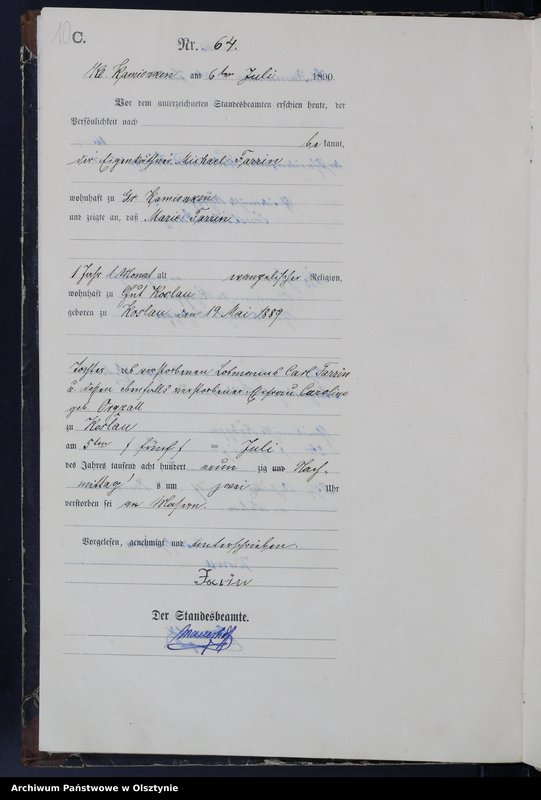 C.
Nr. 64.
Kl. Kamionken am 6ten Juli 1890.
Vor dem unterzeichneten Standesbeamten erschien heute, der
Persönlichkeit nach
be kannt,
der Eigenkäthner Michael Farrin
wohnhaft zu Gr. Kamionken
und zeigte an, daß Marie Farrin
1 Jahr 1 Monat alt evangelischer Religion,
wohnhaft zu Gut Koslau
geboren zu Koslau den 19. Mai 1889
Tochter des verstorbenen Losmanns Carl Farrin
u. dessen ebenfalls verstorbener Ehefrau Caroline
geb. Orgzall
zu Koslau
am 5ten / fünf / im Juli
des Jahres tausend acht hundert neun zig und Nach-
mittag s um zwei Uhr
verstorben sei an Masern.
Vorgelesen, genehmigt und unterschrieben.
Der Standesbeamte.
Archiwum Państwowe w Olsztynie